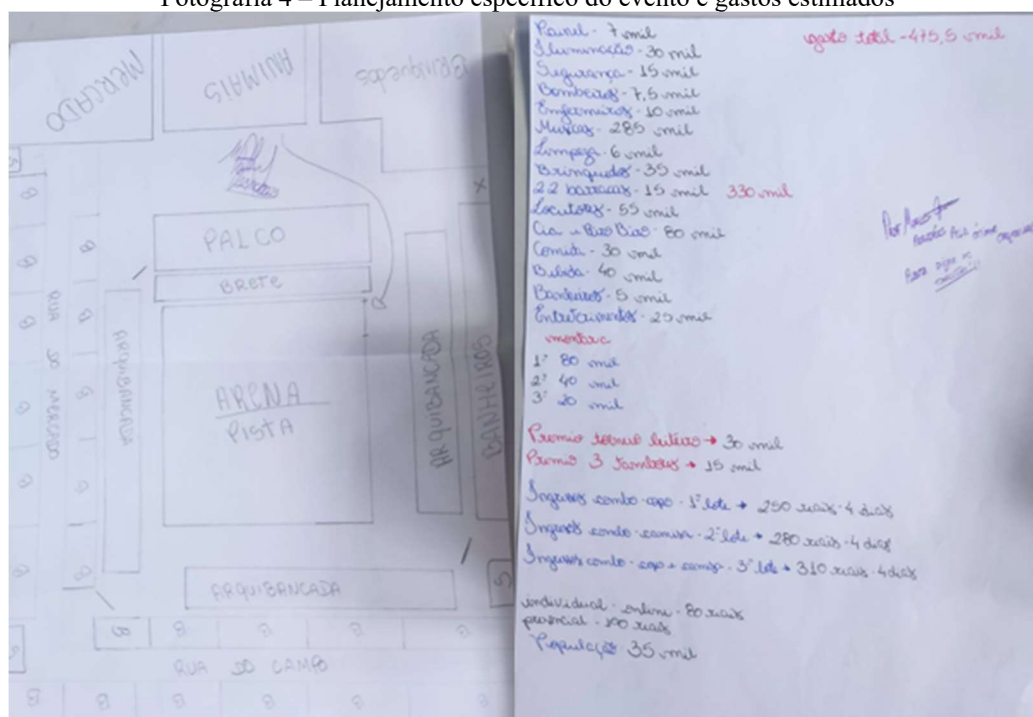 Fotografia 4 – Planejamento específico do evento e gastos estimados
MERCADO
ANIMAIS
BRINQUEDOS
PALCO
BRETE
ARENA
PISTA
ARQUIBANCADA
ARQUIBANCADA
BANHEIROS
ARQUIBANCADA
RUA DO MERCADO
RUA DO CAMPO
S
S
S
B
B
B
B
B
B
B
B
B
B
B
B
Painel - 7 mil
gasto total - 475,5 mil
Iluminação - 30 mil
Segurança - 15 mil
Bombeiros - 7,5 mil
Enfermeiros - 10 mil
Musicas - 285 mil
Limpeza - 6 mil
Brinquedos - 35 mil
22 barracas - 15 mil 330 mil
Locutores - 55 mil
Cia - 80 mil
Comida - 30 mil
Bebida - 40 mil
Banheiros - 5 mil
- 25 mil
montaria
1º 80 mil
2º 40 mil
3º 20 mil
Premio → 30 mil
Premio 3 tambores → 15 mil
Ingressos combo - copo - 1º lote → 250 reais - 4 dias
Ingressos combo - camisa - 2º lote → 280 reais - 4 dias
Ingressos combo - copo + camisa - 3º lote → 310 reais - 4 dias
individual - online - 80 reais
presencial - 100 reais
População 35 mil